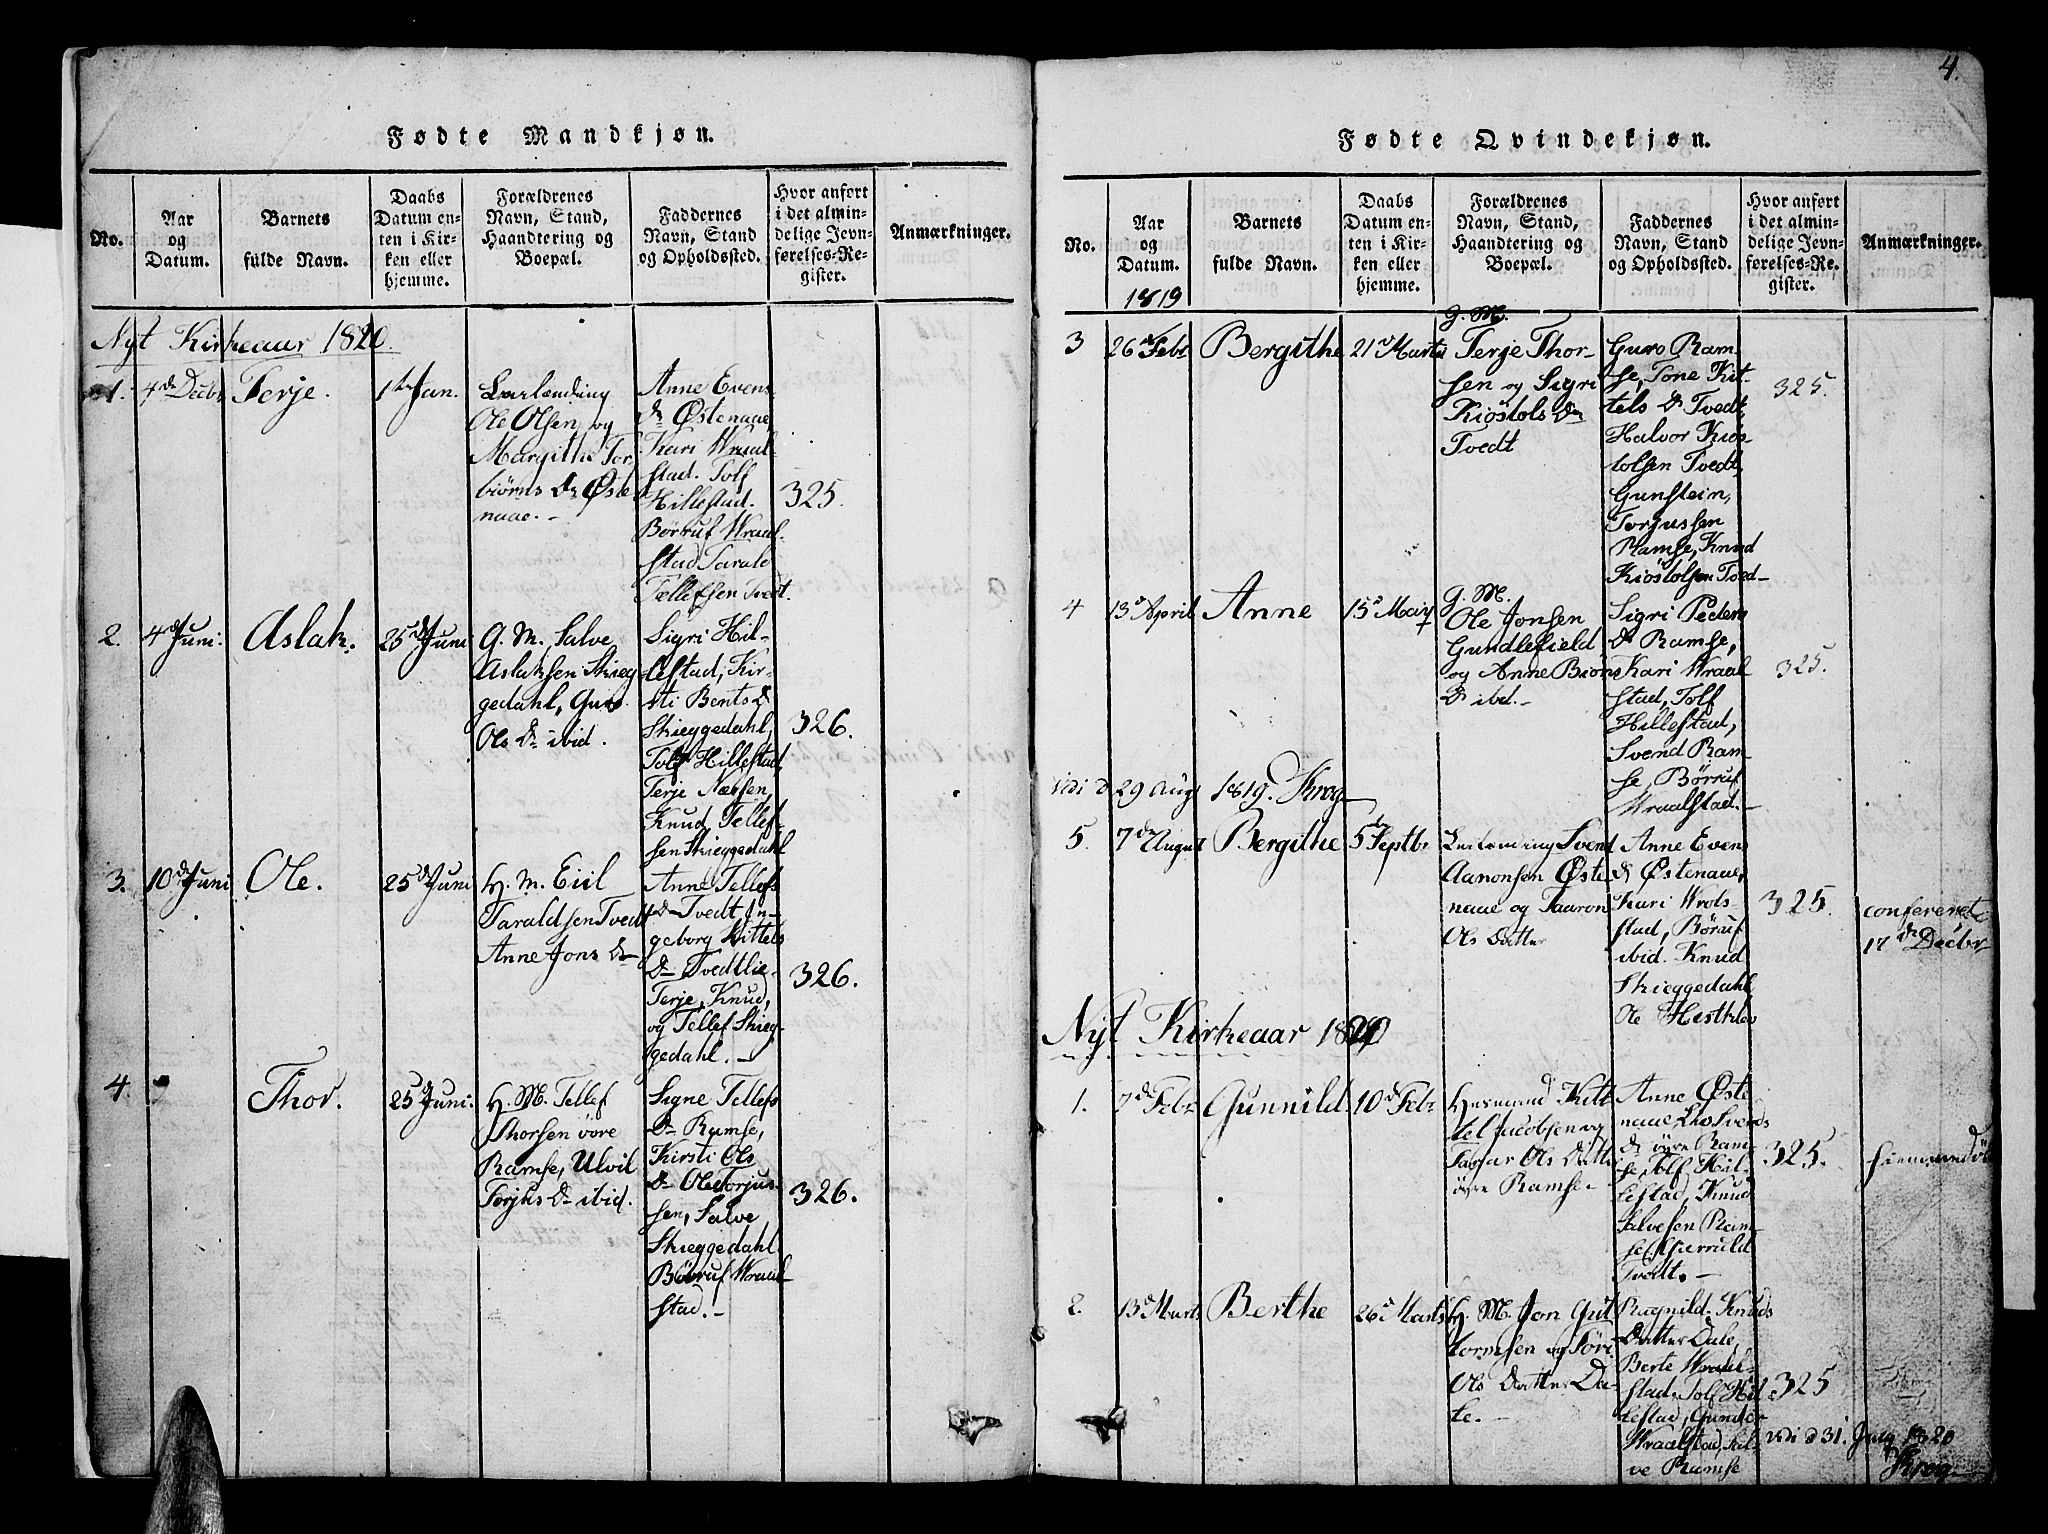 4.
Fødte Mandkjøn.
No.
Aar
og
Datum.
Barnets
fulde Navn.
Daabs
Datum en-
ten i Kir-
ken eller
hjemme.
Forældrenes
Navn, Stand,
Haandtering og
Boepæl.
Faddernes
Navn, Stand
og Opholdssted.
Hvor anført
i det almin-
delige Jevn-
førelses-Re-
gister.
Anmærkninger.
Nyt Kirkeaar 1820.
1.
4de Decbr
Terje.
1te Jan.
Leilending
Ole Olsen og
Margithe Tor
biørns Dr Øste
naae.-
Anne Evens
Dr Østenaae
Kari Wraal-
stad. Tolf
Hillestad.
Børruf Wraal-
stad Tarald
Tellefsen Tvedt.
325.
2.
4de Juni
Aslak.
25de Juni
G. M. Salve
Aslaksen Skieg
gedahl, Guro
Ols Dr ibid.
Sigri Hil-
lestad, Kir-
sti Bents D
Skieggedahl,
Tolf Hillestad,
Terje Næsen,
Knud Tellef-
sen Skieggedahl
326.
3.
10de Juni
Ole.
25de Juni
H. M. Eiil
Taraldsen Tvedt
Anne Jons Dr
Anne Tellefs
Dr Tvedt, In-
geborg Kittels
Dr Tvedtlie
Terje, Knud,
og Tellef Skieg-
gedahl.-
326.
4.
Thor.
25de Juni
H. M. Tellef
Thorsen øvre
Ramse, Ulvil
Torjus Dr ibid.
Signe Tellefs
Dr Ramse,
Kirsti Ols
Dr Ole Torjus-
sen, Salve
Skieggedahl
Børruf Wraal-
stad.-
326.
Fødte Qvindekjøn.
No.
Aar
og
Datum.
1819
Barnets
fulde Navn.
Daabs
Datum en-
ten i Kir-
ken eller
hjemme.
Forældrenes
Navn, Stand,
Haandtering og
Boepæl.
Faddernes
Navn, Stand
og Opholdssted.
Hvor anført
i det almin-
delige Jevn-
førelses-Re-
gister.
Anmærkninger.
3
26d Febr
Bergithe
21d Marts
G. M.
Terje Thor-
sen og Sigri
Kiøstols Dr
Tvedt
Guro Ram-
se, Tone Kit-
tels Dr Tvedt,
Halvor Kiøs-
tolsen Tvedt,
Gunstein,
Torjussen
Ramse, Knud
Kiøstolsen Tved-
325.
4
13d April
Anne
15d Maiy
G. M.
Ole Jonsen
Gundlefield
og Anne Biøns
D ibd.-
Sigri Peders
Dr Ramse,
Kari Wraal
stad, Tolf
Hillestad,
Svend Ram-
se, Børruf
Wraalstad.-
325.
vidi d 29 Aug 1819. Krog
5.
7de August
Bergithe
5de Septbr
Leilending Svend
Aanonsen Øste
naae og Taaron
Ols Datter
Anne Evens
D Østenaae,
Kari Wrols-
stad, Børuf
ibid. Knud
Skieggedahl
Ole Hestklev
325.
conferert
17de Decbr
Nyt Kirkeaar 1820
1.
7de Febr
Gunnild.
10d Febr
Husmand Kit
tel Jacobsen og
Ols Datt
øvre Ramse-
Anne Øste
naae, Svends
D øvre Ram-
se, Tolf Hil-
lestad, Knud
Salvesen Ram-
se,
Tvedt.-
325.
2.
13d Marts
Berthe
26d Marts
H. M. Jon Gut
tormsen og Sori
Ols Datter Da-
le.-
Ragnild Knuds
Datter Dale,
Berte Wraal-
stad. Tolf Hil
lestad, Gunder
Wraalstad, Sal-
ve Ramse
325
vidi d 31. Jul 1820
Krog